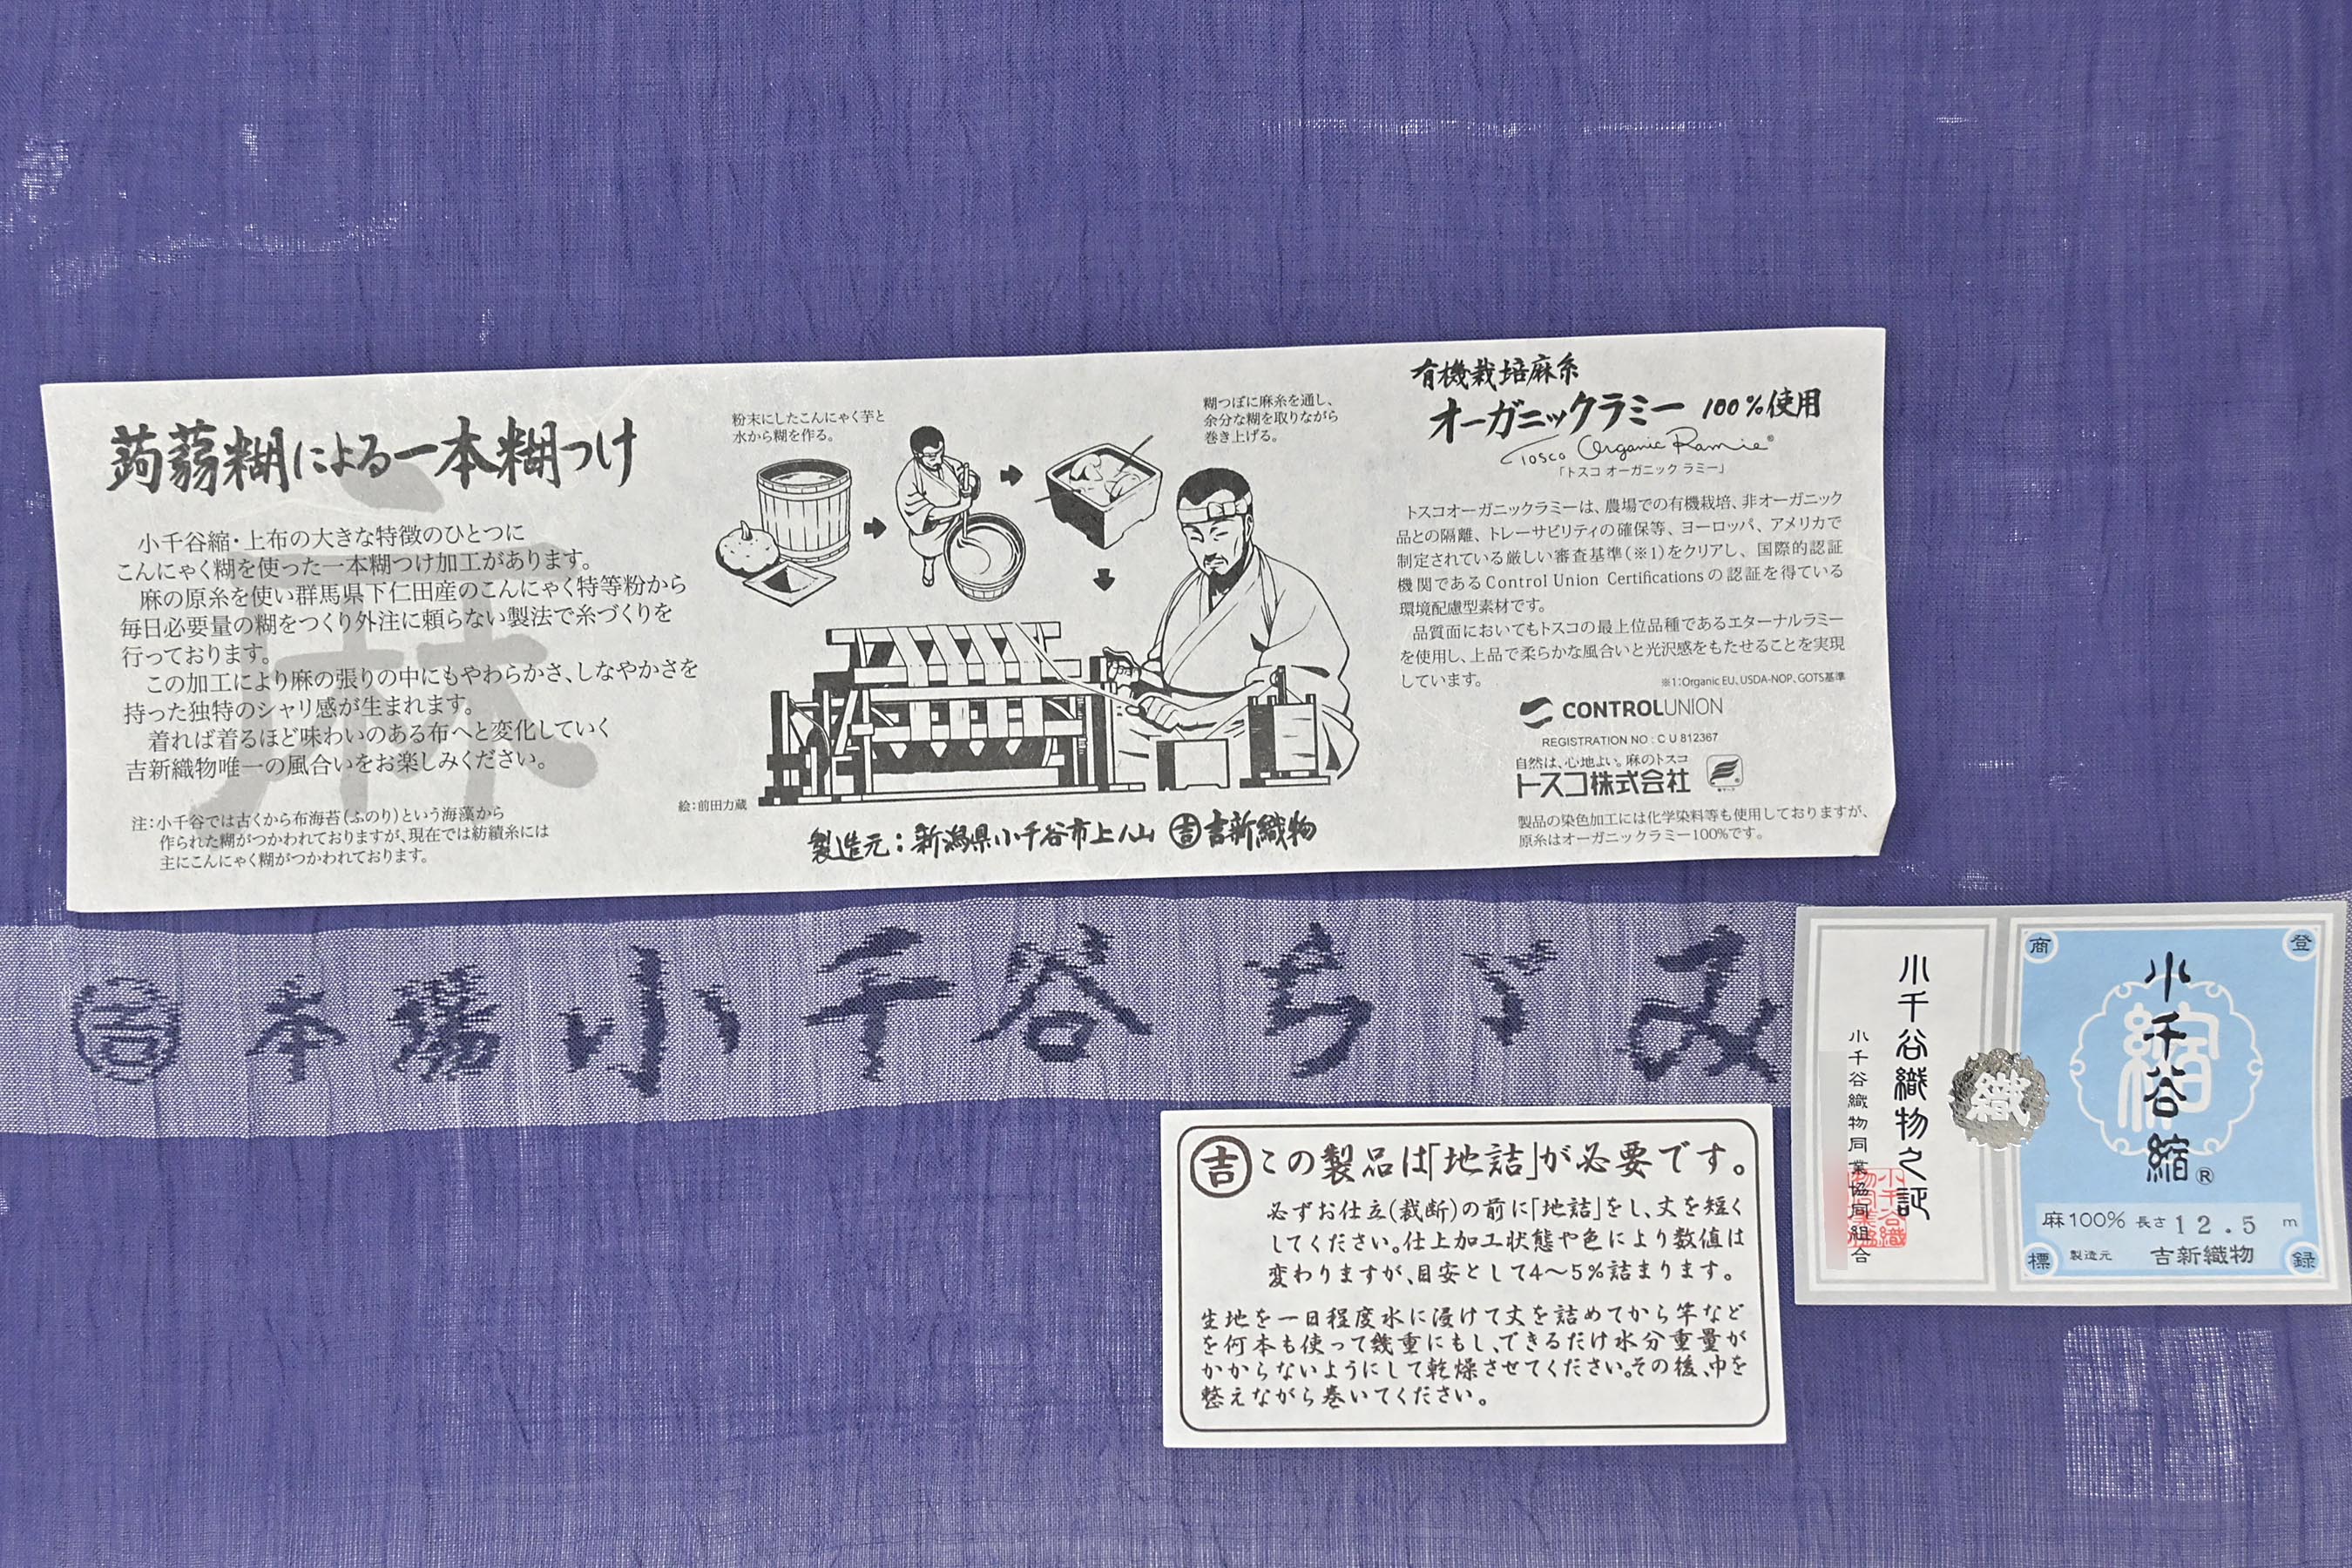 蒟蒻糊による一本糊つけ
小千谷縮・上布の大きな特徴のひとつに
こんにゃく糊を使った一本糊つけ加工があります。
麻の原糸を使い群馬県下仁田産のこんにゃく特等粉から
毎日必要量の糊をつくり外注に頼らない製法で糸づくりを
行っております。
この加工により麻の張りの中にもやわらかさ、しなやかさを
持った独特のシャリ感が生まれます。
着れば着るほど味わいのある布へと変化していく
吉新織物唯一の風合いをお楽しみください。
麻
注：小千谷では古くから布海苔（ふのり）という海藻から
作られた糊がつかわれておりますが、現在では紡績糸には
主にこんにゃく糊がつかわれております。
粉末にしたこんにゃく芋と
水から糊を作る。
糊つぼに麻糸を通し、
余分な糊を取りながら
巻き上げる。
絵：前田力蔵
製造元：新潟県小千谷市上ノ山 吉 吉新織物
有機栽培麻糸
オーガニックラミー 100%使用
Tosco Organic Ramie®
「トスコ オーガニック ラミー」
トスコオーガニックラミーは、農場での有機栽培、非オーガニック
品との隔離、トレーサビリティの確保等、ヨーロッパ、アメリカで
制定されている厳しい審査基準（※1）をクリアし、国際的認証
機関であるControl Union Certificationsの認証を得ている
環境配慮型素材です。
品質面においてもトスコの最上位品種であるエターナルラミー
を使用し、上品で柔らかな風合いと光沢感をもたせることを実現
しています。
※1：Organic EU、USDA-NOP、GOTS基準
CONTROLUNION
REGISTRATION NO : C U 812367
自然は、心地よい。麻のトスコ
トスコ株式会社
製品の染色加工には化学染料等も使用しておりますが、
原糸はオーガニックラミー100%です。
吉 本場小千谷ちゞみ
吉 この製品は「地詰」が必要です。
必ずお仕立(裁断)の前に「地詰」をし、丈を短く
してください。仕上加工状態や色により数値は
変わりますが、目安として4〜5%詰まります。
生地を一日程度水に浸けて丈を詰めてから竿など
を何本も使って幾重にもし、できるだけ水分重量が
かからないようにして乾燥させてください。その後、巾を
整えながら巻いてください。
小千谷織物之証
小千谷織物同業協同組合
織
登
録
商
標
縮
小千谷縮®
麻100% 長さ 12.5 m
製造元 吉新織物